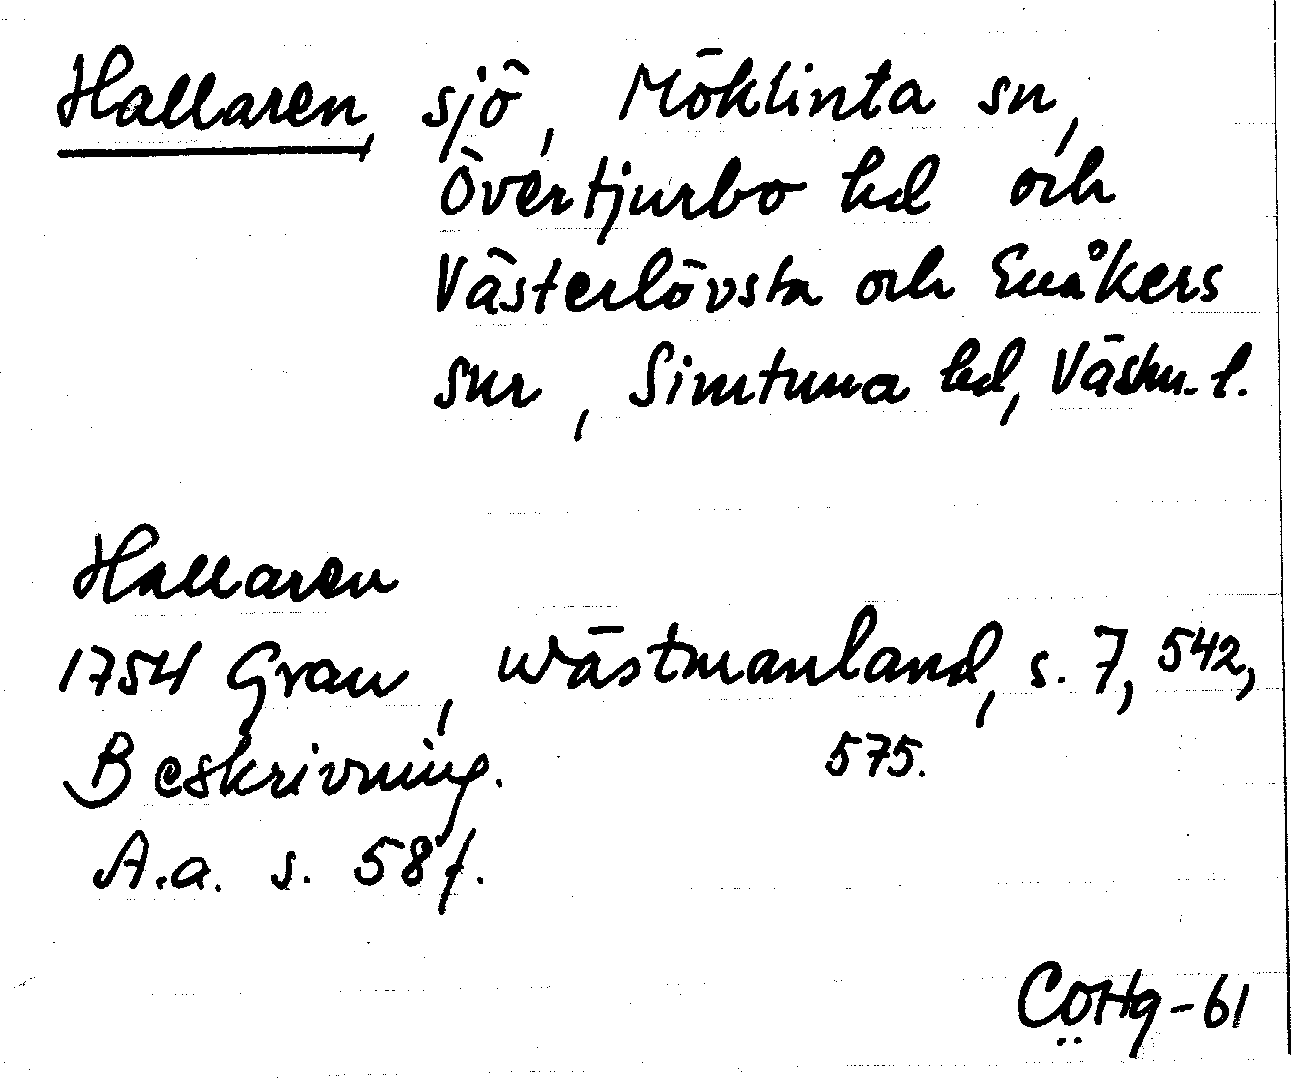 Hallaren, sjö, Möklinta sn,
Övertjurbo hd och
Västerlövsta och Enåkers
snr, Simtuna hd, Västm. l.
Hallaren
1754 Grau, Wästmanland, s. 7, 542,
575.
Beskrivning.
A.a. s. 58 f.
CÖHg-61